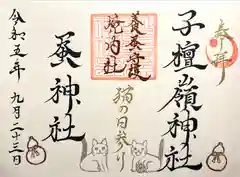 奉拝
子檀嶺神社
養蚕守護
猫の日参り
蚕神社
令和五年 九月二十三日